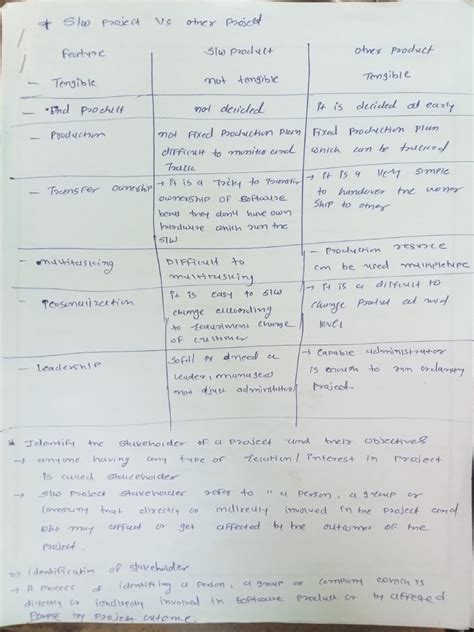 * S/w project Vs other project
Feature | S/w product | other product
- Tengible | not tengible | Tengible
- End product | not decided | It is decided at early
- Production | not Fixed Production plan | Fixed Production plan
difficult to monitor and | which can be tracked
Track
- Transfer ownership | → It is a Tricky to Transfer | → It is a very simple
ownership of software | to handover the owner
they don't have own | ship to other
hardware which run the
S/W
- multitasking | Difficult to | - production resource
multitasking | can be used
It is easy to S/w | → It is a difficult to
change according | change product at
to requirement change | level
of customer
- Leadership | need a | → capable administrator
leader, manager | is enough to run ordinary
not just adminstrator | project.
* Identify the stakeholder of a project and their objectives
→ anyone having any type of relation / interest in project
is called stakeholder
→ S/w project stakeholder refer to " a person, a group or
company that directly or indirectly involved in the project and
who may affect or get affected by the outcome of the
project.
⇒ identification of stakeholder
→ A process of identifying a person, a group or company which is
directly or indirectly involved in software product or by affected
by project outcome.